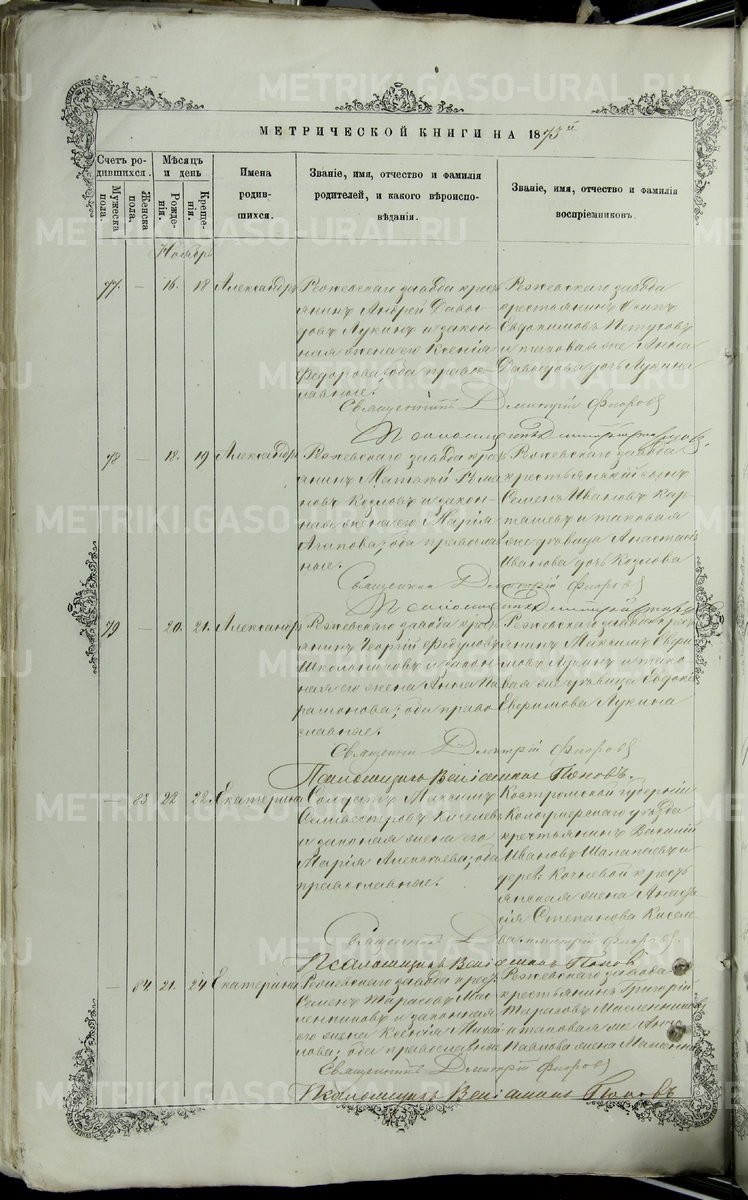 METRIKI.GASO-URAL.RU
МЕТРИЧЕСКОЙ КНИГИ НА 1873й
Счетъ ро-
дившихся.
Мужеска
пола.
Женска
пола.
Мѣсяцъ
и день
Рожде-
нія.
Креще-
нія.
Имена
родив-
шихся.
Званіе, имя, отчество и фамилія
родителей, и какого вѣроиспо-
вѣданія.
Званіе, имя, отчество и фамилія
воспріемниковъ.
Ноябрь
77. — 16. 18 Александръ
Режевскаго завода крес
янинъ Андрей Давы
довъ Лукинъ и закон
ная жена его Ксенія
Федорова; оба право
славные.
Режевскаго завода
крестьянинъ Осипъ
Евдокимовъ Петуховъ
и таковая же Анна
Давыдова дочь Лукина
Священникъ Дмитрій Флоровъ
78 — 18. 19 Александръ
Режевскаго завода крес
янинъ Матвей
новъ Козловъ и закон
ная жена его Марія
Агапова; оба правосла
ные.
Режевскаго завода
крестьянскій сынъ
Семенъ Ивановъ Кар
ташевъ и таковая
же девица Анастас
Иванова дочь Козлова
Священникъ Дмитрій Флоровъ
79 — 20. 21. Александръ
Режевскаго завода крес
янинъ Георгій Федуловъ
Школьниковъ и закон
ная его жена Анна Па
рамонова; оба право
славные.
Режевскаго завода крес
янинъ Максимъ Ефри
мовъ Лукинъ и тако
вая же девица Евдок
Ефримова Лукина
Священникъ Дмитрій Флоровъ
Псаломщикъ Веніаминъ Поповъ.
— 83 22 22. Екатерина
Солдатъ Максимъ
Селивестровъ Киселевъ
и законная жена его
Марія Алексеева; оба
православные.
Костромской губерніи
уезда
крестьянинъ Василій
Ивановъ и
дерев. Кочневой крест
янская жена Анаста
сія Степанова Киселе
Священникъ Дмитрій Флоровъ.
Псаломщикъ Веніаминъ Поповъ
— 84 21. 24 Екатерина
Режевскаго завода крес
Семенъ Тарасовъ Мас
ленниковъ и законная
его жена Ксенія Михай
лова; оба православные
Режевскаго завода
крестьянинъ Григорій
Тарасовъ Масленниковъ
и таковая же Анна
Павлова жена
Священникъ Дмитрій Флоровъ
Псаломщикъ Веніаминъ Поповъ